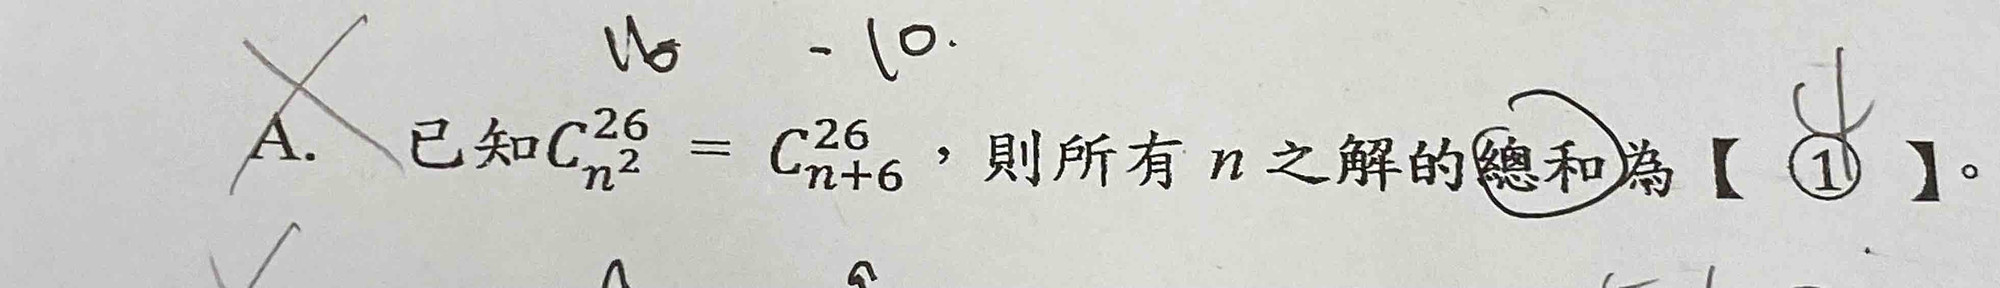 16 -10.
A. 已知$C_{n^2}^{26} = C_{n+6}^{26}$，則所有 n 之解的總和為【 ① 】。